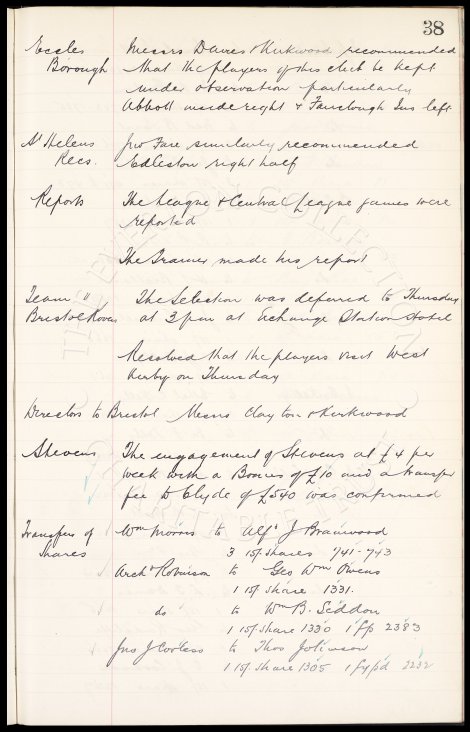 38
Eccles Messrs Davies & Kirkwood recommended
Borough that the players of this club be kept
under observation particularly
Abbott inside right & Fairclough Ins left
St Helens Jno Fare similarly recommended
Recs. Edleston right half
Reports The League & Central League games were
reported
The Trainer made his report
Team v The Selection was deferred to Thursday
Bristol Rovers at 3 pm at Exchange Station Hotel
Resolved that the players visit West
Kirby on Thursday
Directors to Bristol Messrs Clayton & Kirkwood
Stevens The engagement of Stevens at £4 per
week with a Bonus of £10 and a transfer
fee to Clyde of £540 was confirmed
Transfers of Wm Morris to Alfd J Brainwood
Shares 3 1st shares 741-743
Archd Robinson to Geo Wm Owens
1 1st share 1331.
do to Wm B. Seddon
1 1st share 1330 1 fp 2383
Jno J Corless to Thos Johnson
1 1st share 1305 1 fypd 2232
THE EVERTON COLLECTION
CHARITABLE TRUST